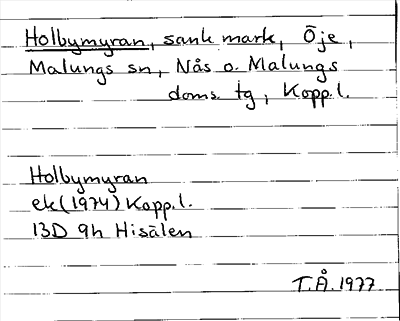 Holbymyran, sank mark, Öje,
Malungs sn, Nås o. Malungs
doms. tg, Kopp.l.
Holbymyran
ek (1974) Kopp.l.
13D 9h Hisälen
T.Å. 1977